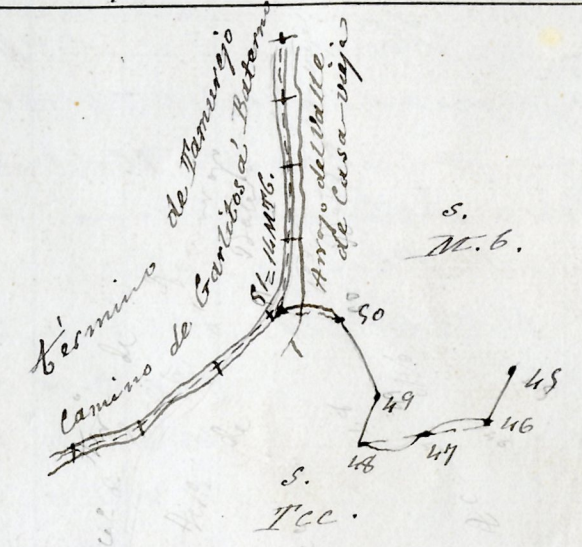 término de Tamurejo
Camino de Garlitos á Baterno
51=1º MT6.
Arroyo del Valle
de Casa vieja
S.
M. 6.
50
49
48
47
46
45
S.
Tcc.